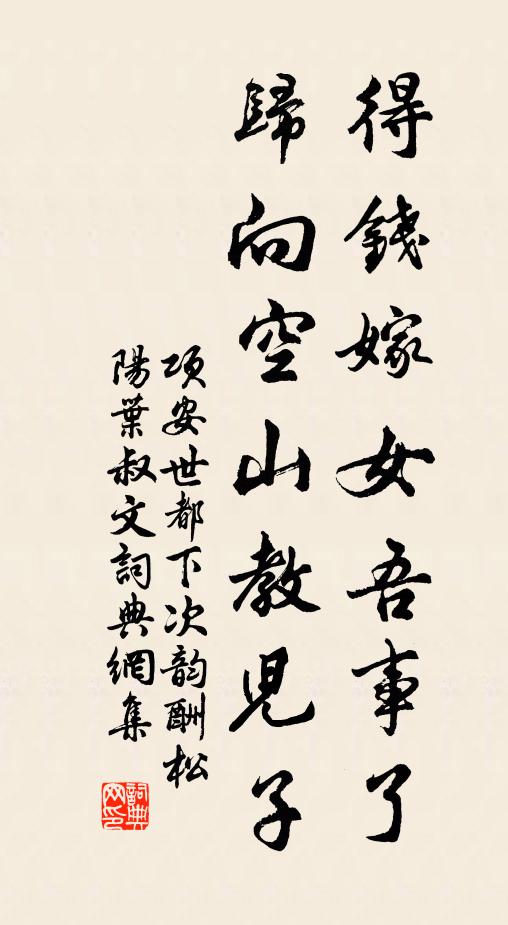 得錢嫁女吾事了
歸向空山教兒子
項安世都下次韵酬松
陽葉叔文詞典網集
詞典
网印